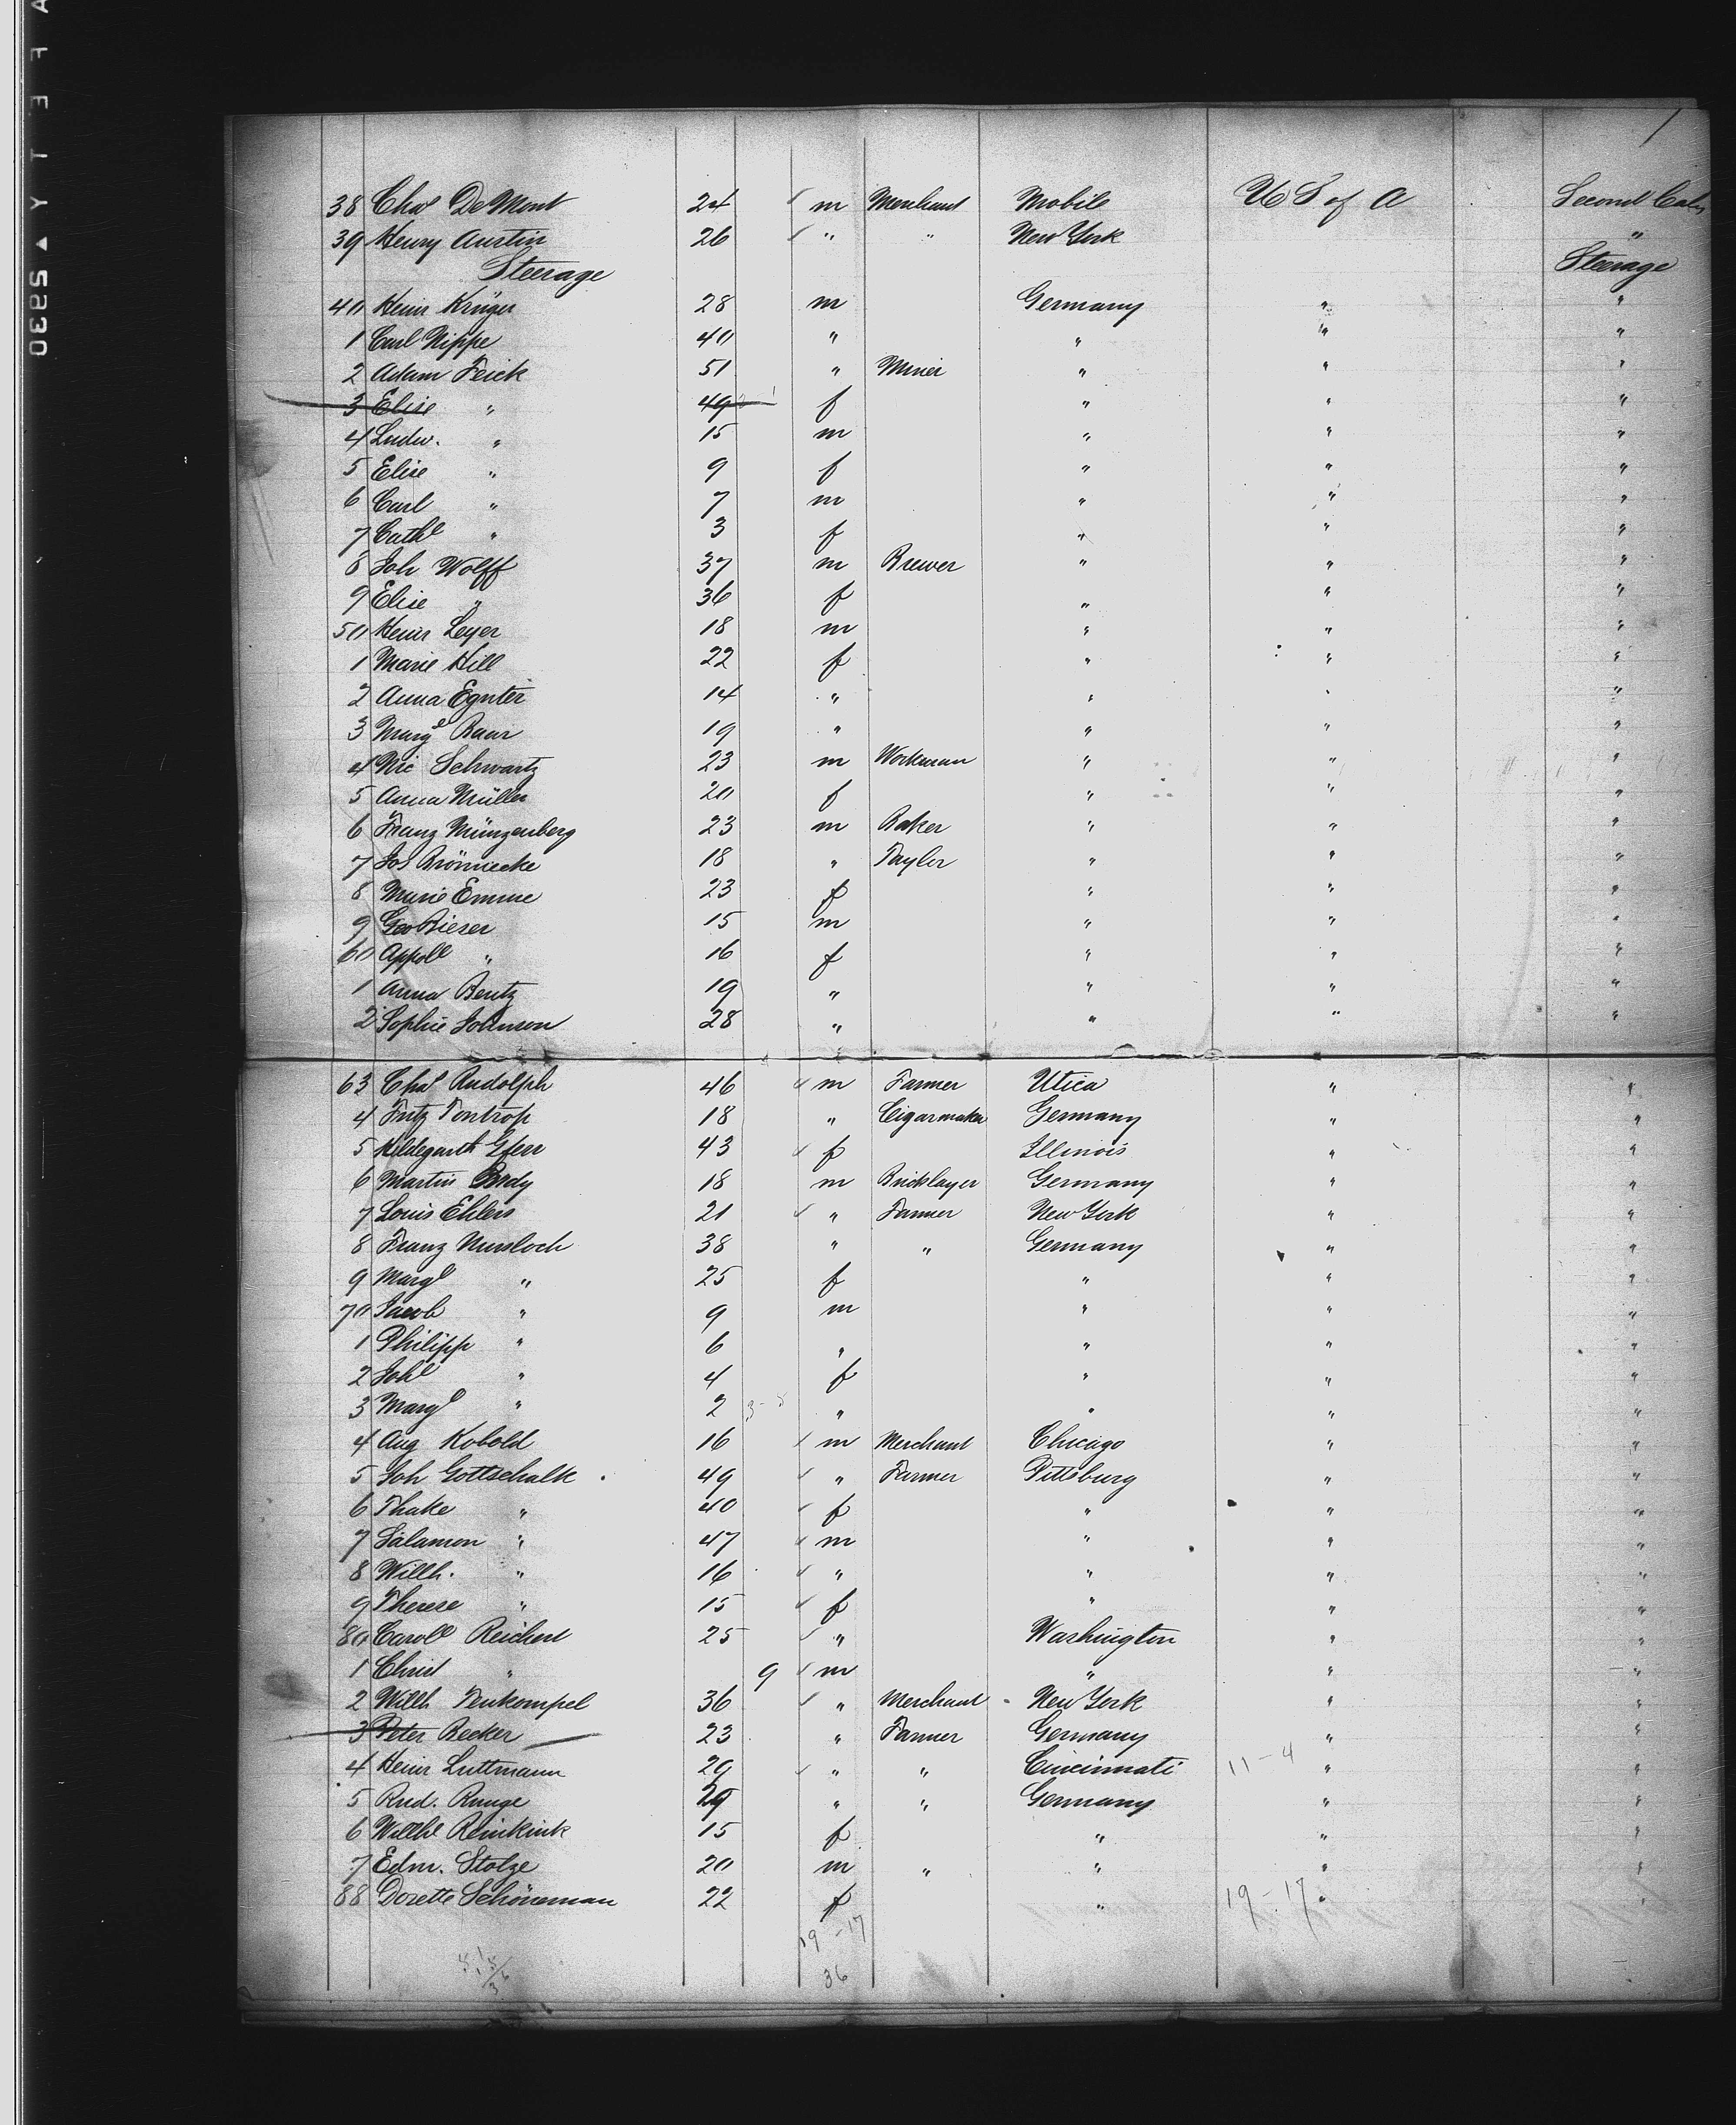 1
38 Chas DeMont 24 m Merchant Mobile U S of A Second Cab
39 Henry Austin 26 " " New York "
Steerage Steerage
40 Heinr Krüger 28 m Germany " "
1 Carl Nippe 40 " " " "
2 Adam Feick 51 " Miner " " "
3 Elise " 49 f " " "
4 Ludw. " 15 m " " "
5 Elise " 9 f " " "
6 Carl " 7 m " " "
7 Cathe " 3 f " " "
8 Joh Wolff 37 m Brewer " " "
9 Elise " 36 f " " "
50 Heinr Leyer 18 m " " "
1 Marie Hill 22 f " " "
2 Anna Egnter 14 " " " "
3 Marge Baur 19 " " " "
4 Nic Schwartz 23 m Workman " " "
5 Anna Müller 20 f " " "
6 Franz Münzenberg 23 m Baker " " "
7 Jos Brönnecke 18 " Tayler " " "
8 Marie Emme 23 f " " "
9 Geo Bieser 15 m " " "
60 Appoll " 16 f " " "
1 Anna Bentz 19 " " " "
2 Sophie Johnson 28 " " " "
63 Chas Rudolph 46 m Farmer Utica " "
4 Fritz Fontrop 18 " Cigarmaker Germany " "
5 Hildegarth Gferr 43 f Illinois " "
6 Martin Brdy 18 m Bricklayer Germany " "
7 Louis Ehlers 21 " Farmer New York " "
8 Franz Nussloch 38 " " Germany " "
9 Marge " 25 f " " "
70 Jacob " 9 m " " "
1 Philipp " 6 " " " "
2 Johe " 4 f " " "
3 Marge " 2 " " " "
4 Aug Kobold 16 m Merchant Chicago " "
5 Joh Gottschalk 49 " Farmer Pittsburg " "
6 Thake " 40 f " " "
7 Salamon " 47 m " " "
8 Willh. " 16 " " " "
9 Therese " 15 f " " "
80 Carole Reichert 25 " Washington " "
1 Christ " 9 m " " "
2 Willh Tenkompel 36 " Merchant New York " "
3 Peter Becker 23 " Farmer Germany " "
4 Heinr Luttmann 29 " " Cincinnati 11-4 " "
5 Rud. Runge 29 " " Germany " "
6 Willhe Reinkink 15 f " " "
7 Edm. Stolze 20 m " " " "
88 Dorette Schöneman 22 f " 19-17 " "
19-17
36